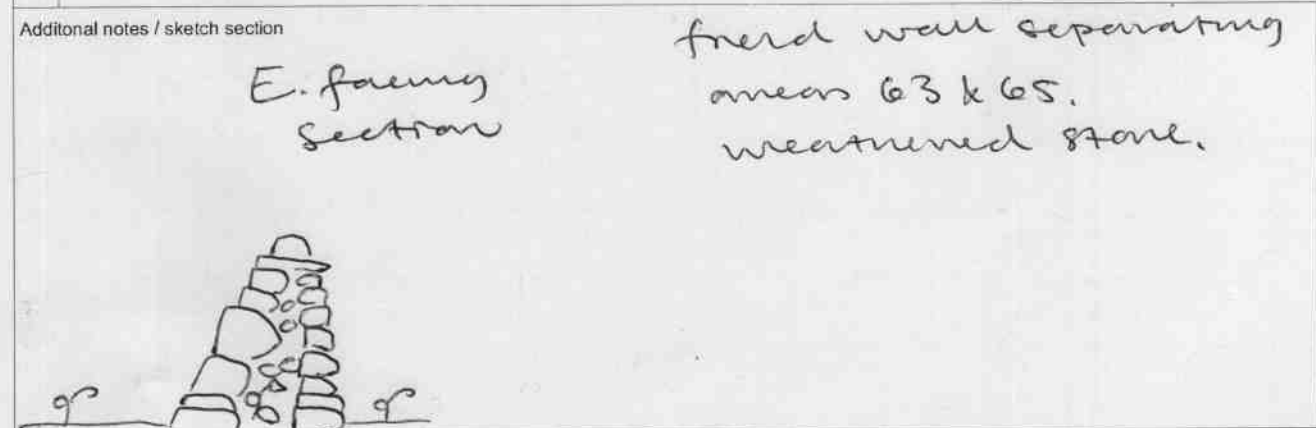 Additonal notes / sketch section
E. facing
section
field wall separating
areas 63 & 65.
weathered stone.